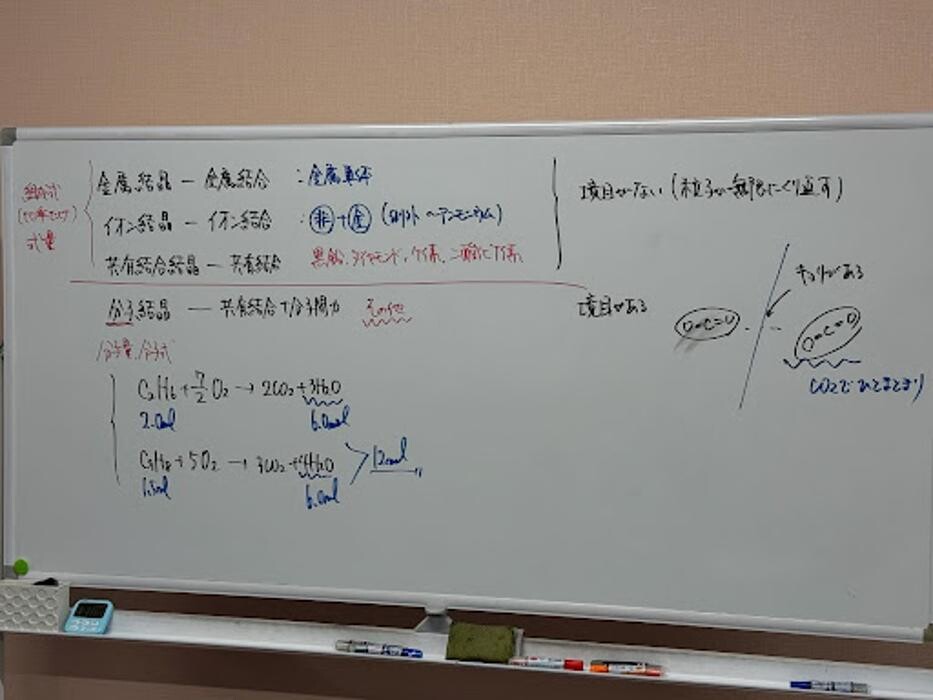 金属結晶 — 金属結合 : 金属単体
境目がない (粒子が無限にくり返す)
組成式
イオン結晶 — イオン結合 : 非+金 (例外 〜アンモニウム)
式量
共有結合結晶 — 共有結合 黒鉛、ダイヤモンド、ケイ素、二酸化ケイ素
分子結晶 — 共有結合+分子間力 その他
境目がある
キョリがある
O=C=O
O=C=O
CO2でひとまとまり
分子量、分子式
C2H6+7/2 O2→2CO2+3H2O
2.0mol 6.0mol
C3H8+5O2→3CO2+4H2O 12mol
1.5mol 6.0mol